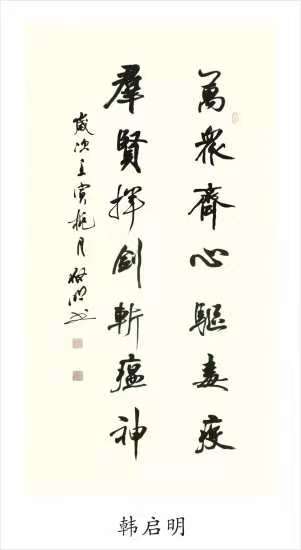 萬衆齊心驅毒疫
羣賢揮劍斬瘟神
歲次壬寅桃月啟明書
韩启明